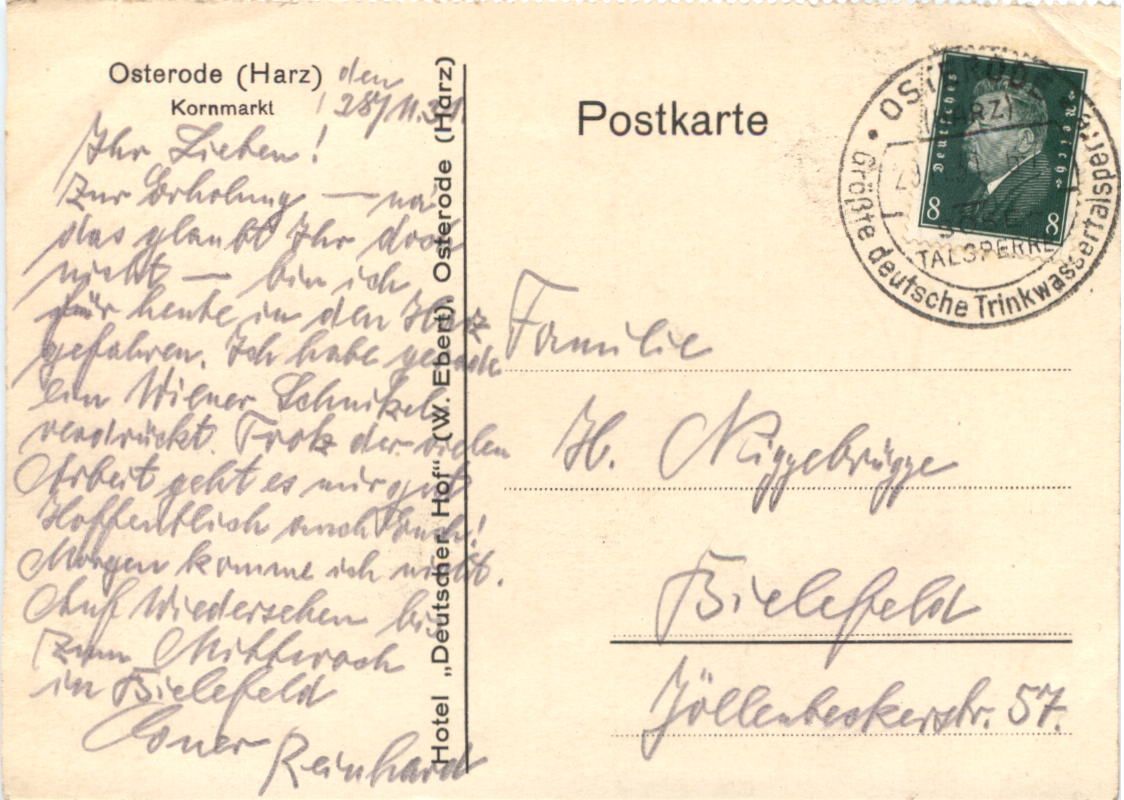 Osterode (Harz) den
Kornmarkt 28/11.31.
Ihr Lieben!
Zur Erholung — na
das glaubt Ihr doch
nicht — bin ich
für heute in den Harz
gefahren. Ich habe gerade
ein Wiener Schnitzel
verdrückt. Trotz der vielen
Arbeit geht es mir gut
Hoffentlich auch Euch!
Morgen komme ich nicht.
Auf Wiedersehen bis
zum Mittwoch
in Bielefeld
Euer Reinhard
Hotel „Deutscher Hof“ (W. Ebert), Osterode (Harz)
Postkarte
OSTERODE
(HARZ)
TALSPERRE
Größte deutsche Trinkwassertalsperre
Deutsches Reich
8 8
Familie
H. Niggebrügge
Bielefeld
Jöllenbeckerstr. 57.